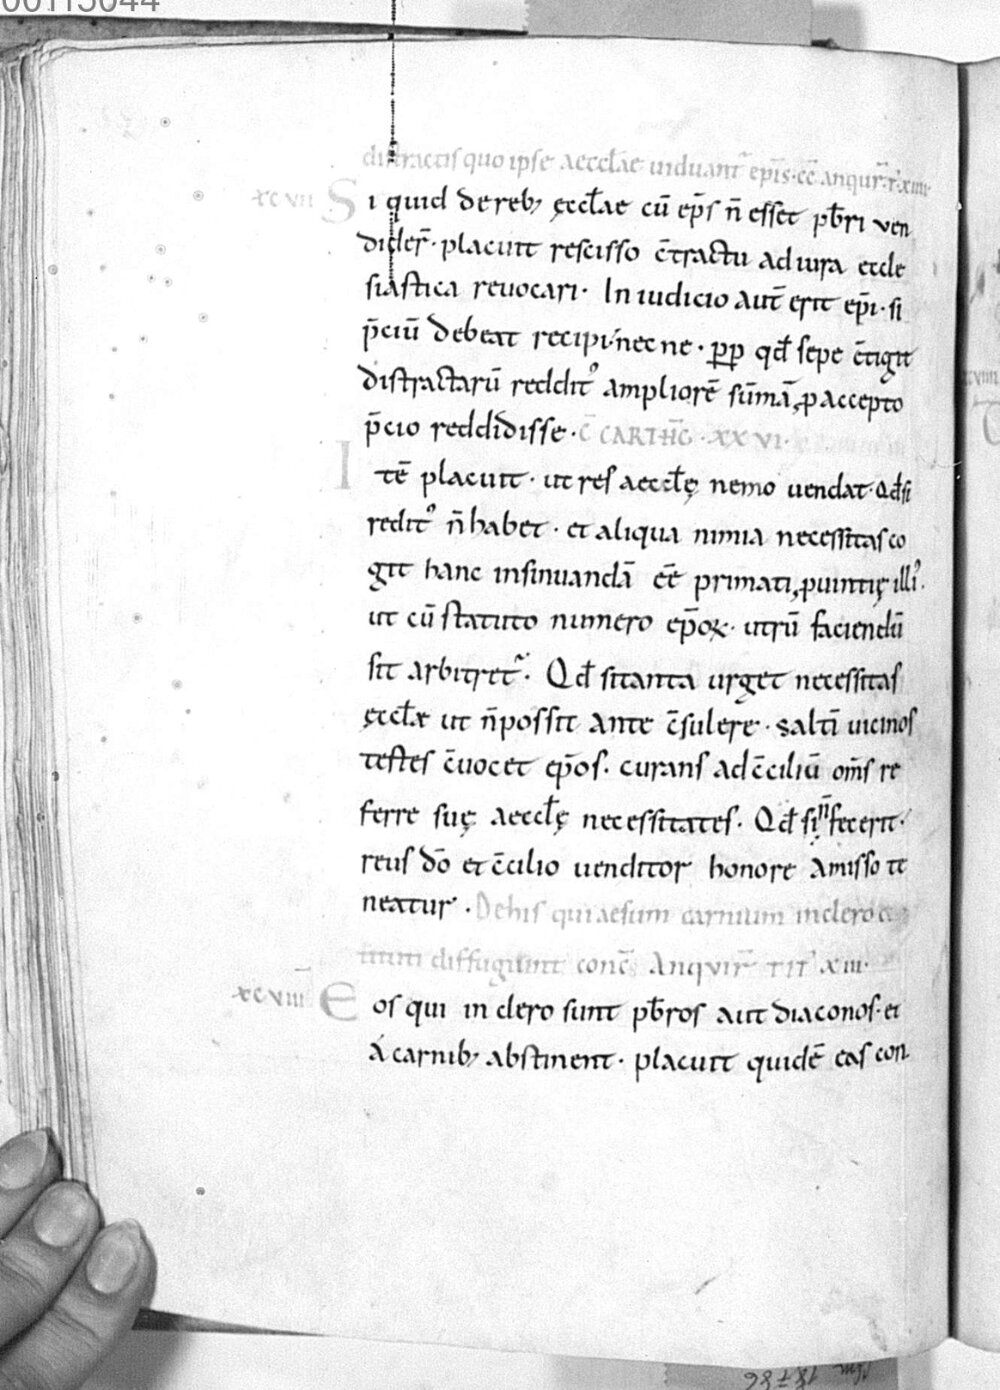 00113044
distractis quo ipse aeccl̄ae uiduant᷑ epis̄. cc̄ anqur̄. t̄. xiiii.
xcvii Si quid de reb; ęccl̄ae cū ep̄s n̄ esset pb̄ri ven
dider̄. placuit rescisso c̄tractu ad iura eccle
siastica reuocari. In iudicio aut̄ erit ep̄i. si
p̄ciū debeat recipi. nec ne. ꝓp qđ sepe c̄tigit
distractarū reddit᾿ ampliorē sūmā, p accepto
p̄cio reddidisse. c̄ CARTHḠ. XXVI.
Itē placuit. ut res aeccl̄ę nemo uendat. Qđ si
redit᾿ n̄ habet. et aliqua nimia necessitas co
git hanc insinuandā eē̄ primati, ꝓuintię illi᾿.
ut cū statuto numero ep̄oꝝ. utrū faciendū
sit arbitret᷑. Qđ si tanta urget necessitas
ęccl̄æ ut n̄ possit ante c̄sulere. saltī uicinos
testes c̄uocet ep̄os. curans ad c̄ciliū om̄s re
ferre suę aeccl̄ę necessitates. Qđ si n̄ fecerit.
reus dō et c̄cilio uenditor honore amisso te
neatur. De his qui aesum carnium in clero
diffugiunt conc̄ Anqvir̄ TIT᾿ xiii.
xcviii Eos qui in clero sunt pb̄ros aut diaconos. et
á carnib; abstinent. placuit quidē eas con